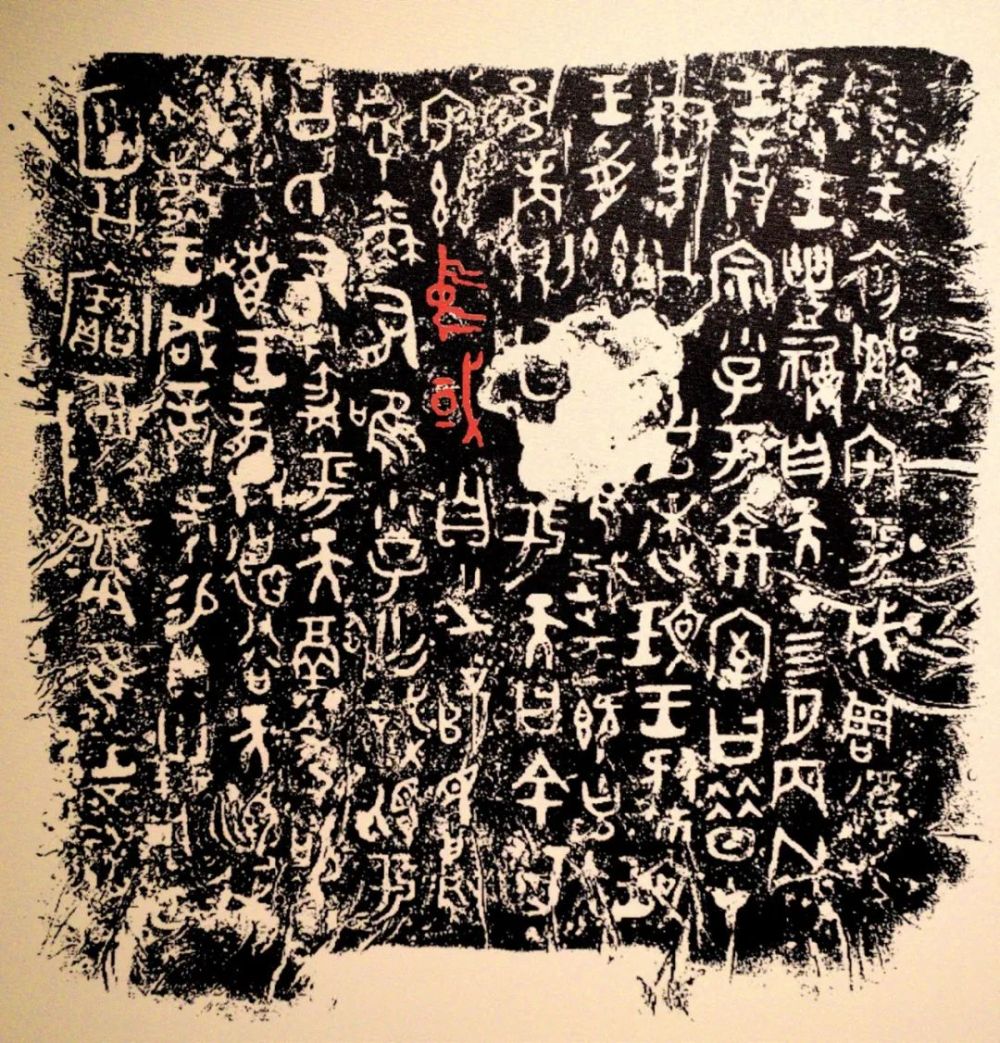 隹王初遷宅于成周復爯
珷王豊祼自天在四月丙戌
王誥宗小子于京室曰昔在
爾考公氏克逨玟王肆玟
王受茲隹珷王既克大
邑商則廷告于天曰余其
宅茲中或自之乂民烏
虖爾有唯小子亡識視于
公氏有爵于天徹令敬
享哉叀王龏德谷天順我不
敏王咸誥何易貝卅朋用乍
公寶尊彝隹王五祀